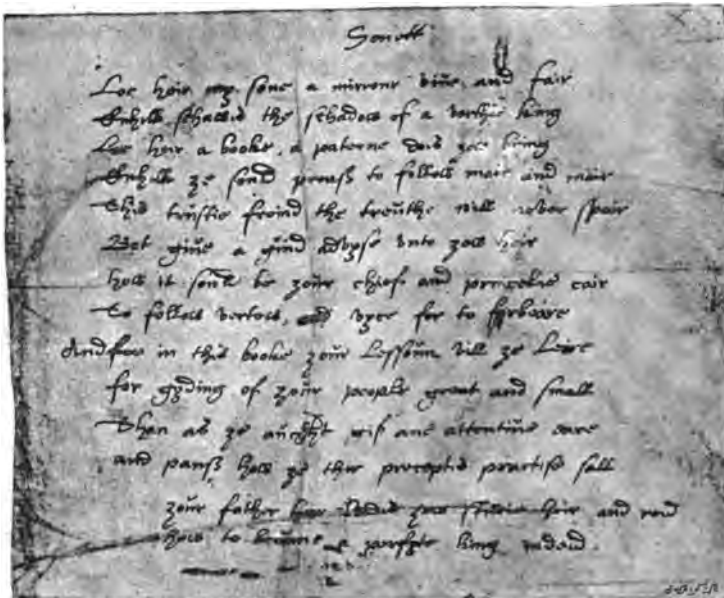 Sonett
Loe heir my sone a mirrour viue and fair
Quhilk schawis the schadow of a vorthie king
Loe heir a booke, a paterne dois zow bring
Quhilk ze sould preass to follow mair and mair
This trustie freind the treuthe will never spair
Bot giue a guid advyse unto zow heir
how it sould be zour chief and princelie cair
To follow vertew, vyce for to forbeare
And in this booke zour Lessoun vill ze Leire
for gyding of zour people great and small
Than as ze aucht gif ane attentiue eare
and panss how ze thir preceptis practise sall
zour father heir and reid
how to become a perfyte king indeid.